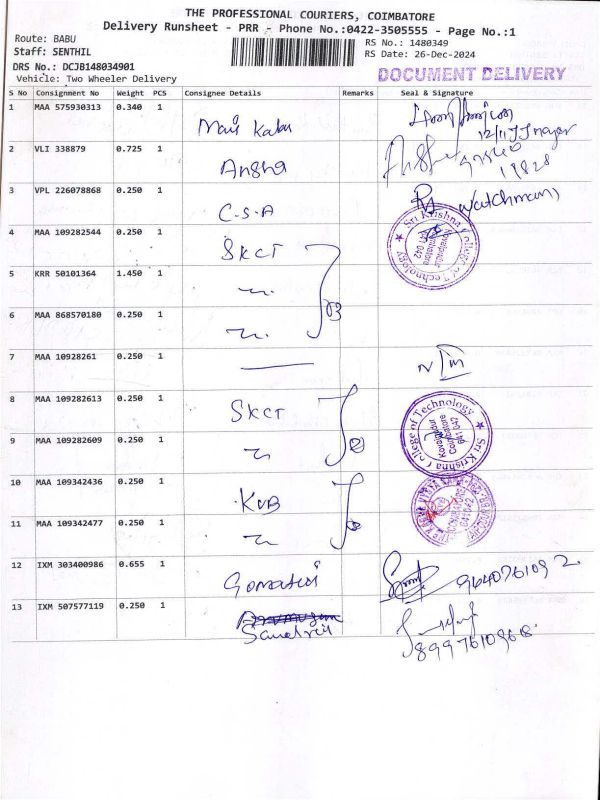 THE PROFESSIONAL COURIERS, COIMBATORE
Delivery Runsheet - PRR - Phone No.:0422-3505555 - Page No.:1
Route: BABU
Staff: SENTHIL
RS No.: 1480349
RS Date: 26-Dec-2024
DRS No.: DCJB148034901
Vehicle: Two Wheeler Delivery
DOCUMENT DELIVERY
S No Consignment No Weight PCS Consignee Details Remarks Seal & Signature
1 MAA 575930313 0.340 1
12/11 JJ nagar
2 VLI 338879 0.725 1 Ansha
3 VPL 226078868 0.250 1 C.S.A watchman
4 MAA 109282544 0.250 1 SKCT
Sri Krishna College of Technology
Kovaipudur
Coimbatore
641 042
5 KRR 50101364 1.450 1
03
6 MAA 868570180 0.250 1
7 MAA 10928261 0.250 1
8 MAA 109282613 0.250 1 SKCT
Sri Krishna College of Technology
Kovaipudur
Coimbatore
641 042
9 MAA 109282609 0.250 1
10 MAA 109342436 0.250 1 KVB
11 MAA 109342477 0.250 1
12 IXM 303400986 0.655 1 Gomathi
13 IXM 507577119 0.250 1